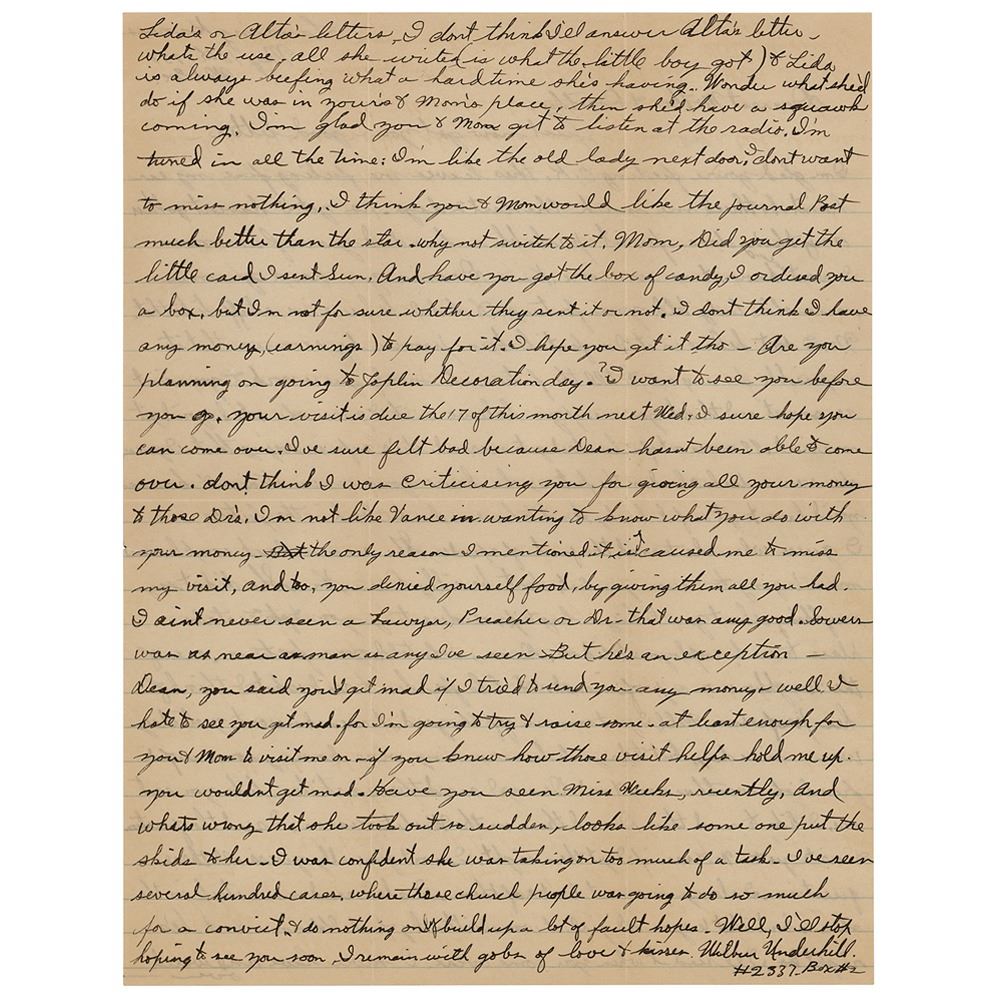 Lida's or Alta's letters, I dont think I'll answer Alta's letter -
whats the use, all she writes is what the little boy got ) & Lida
is always beefing what a hard time she's having. Wonder what she'd
do if she was in your's & Mom's place, then she'd have a squawk
coming. I'm glad you & Mom get to listen at the radio. I'm
tuned in all the time; I'm like the old lady next door, I dont want
to miss nothing,. I think you & Mom would like the Journal Post
much better than the star. why not switch to it. Mom, Did you get the
little card I sent Sun. And have you got the box of candy, I ordered you
a box, but I'm not for sure whether they sent it or not. I dont think I have
any money, (earnings) to pay for it. I hope you get it tho - Are you
planning on going to Joplin Decoration day.? I want to see you before
you go. your visit is due the 17 of this month next Wed. I sure hope you
can come over. I've sure felt bad because Dean hasnt been able to come
over. dont think I was criticising you for giving all your money
to those Drs. I'm not like Vance in wanting to know what you do with
your money. But the only reason I mentioned it is it caused me to miss
my visit, and too, you denied yourself food, by giving them all you had.
I aint never seen a Lawyer, Preacher or Dr- that was any good. Sowers
was as near a man as any I've seen But he's an exception -
Dean, you said you'd get mad if I tried to send you any money. well I
hate to see you get mad. for I'm going to try & raise some. at least enough for
you & Mom to visit me on - if you knew how those visit helps hold me up.
you wouldnt get mad. Have you seen Miss Weeks, recently, and
whats wrong that she took out so sudden, looks like some one put the
skids to her. I was confident she was taking on too much of a task. I've seen
several hundred cases, where those church people was going to do so much
for a convict. & do nothing only build up a lot of fault hopes. Well, I'll stop
hoping to see you soon, I remain with gobs of love & kisses. Wilbur Underhill.
#2337. Box #2